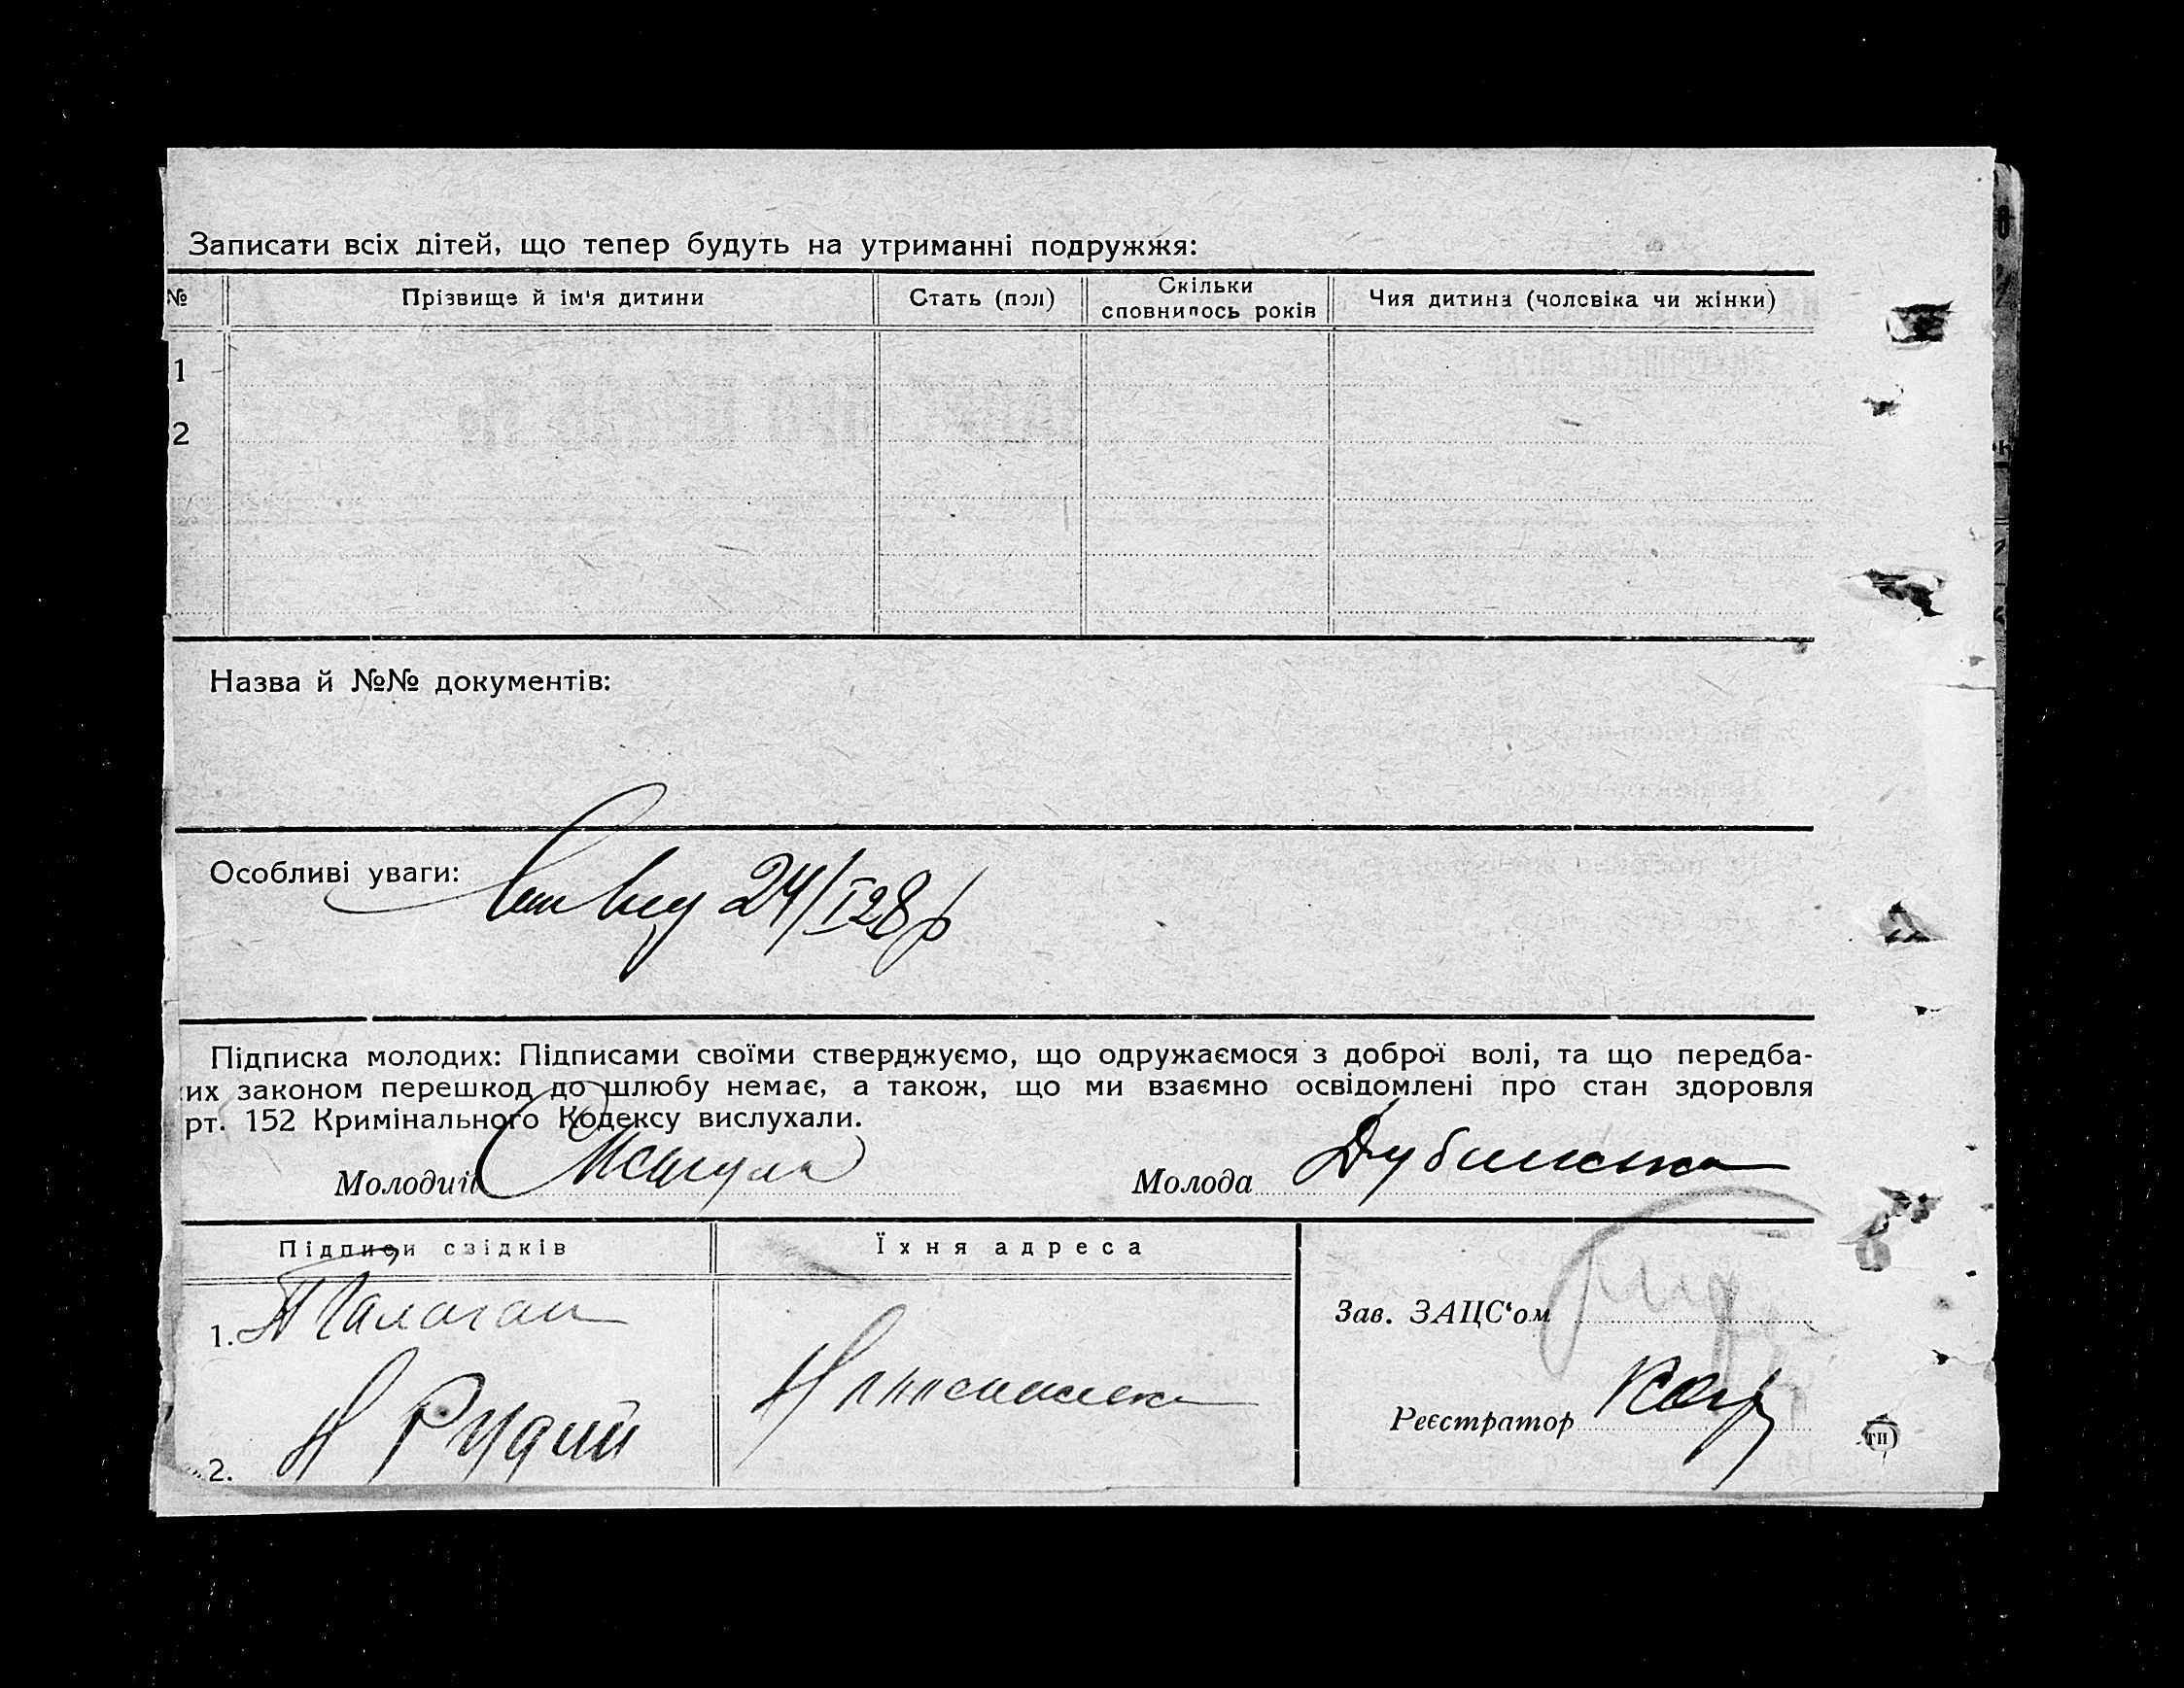 Записати всіх дітей, що тепер будуть на утриманні подружжя:
№ Прізвище й ім'я дитини Стать (пол) Скільки сповнилось років Чия дитина (чоловіка чи жінки)
1
2
Назва й №№ документів:
Особливі уваги: 24/I 28 р
Підписка молодих: Підписами своїми стверджуємо, що одружаємося з доброї волі, та що передба-
их законом перешкод до шлюбу немає, а також, що ми взаємно освідомлені про стан здоровля
рт. 152 Кримінального Кодексу вислухали.
Молодий Молода
Підписи свідків Їхня адреса
Зав. ЗАЦС'ом
1. Галаган
Реєстратор
2. Н Рудий